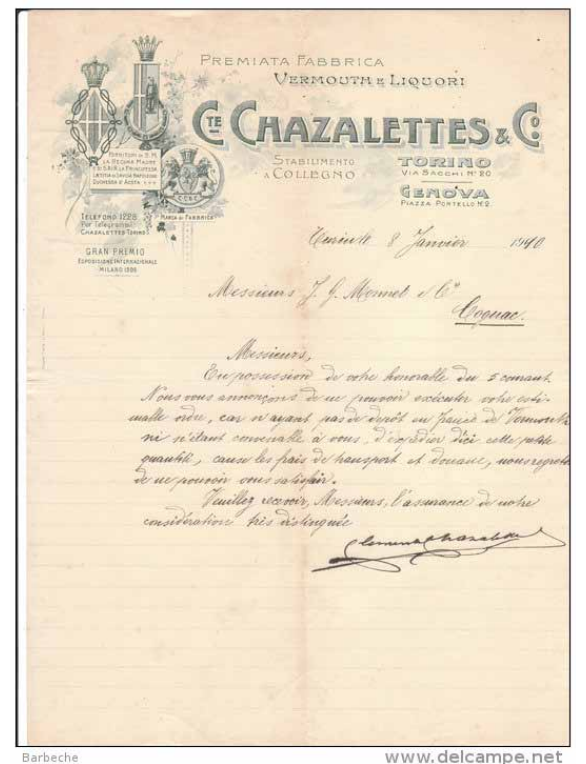 PREMIATA FABBRICA
VERMOUTH E LIQUORI
CTE CHAZALETTES & CO.
STABILIMENTO
A COLLEGNO
TORINO
VIA SACCHI No 20
GENOVA
PIAZZA PORTELLO No 2.
FORNITORI DI S. M.
LA REGINA MADRE
E DI S.A.I.R. LA PRINCIPESSA
LAETITIA DI SAVOIA NAPOLEONE
DUCHESSA D'AOSTA
TELEFONO 1228
Per Telegrammi:
CHAZALETTES-TORINO
Marca di Fabbrica
GRAN PREMIO
ESPOSIZIONE INTERNAZIONALE
MILANO 1906
Turin le 8 Janvier 1910
Messieurs J. G. Monnet & Co
Cognac.
Messieurs,
En possession de votre honorable du 5 courant.
Nous vous annonçons de ne pouvoir exécuter votre esti-
mable ordre, car n'ayant pas de depôt en france de Vermouth
ni n'étant convenable à vous, d'expédier d'ici cette petite
quantité, cause les frais de transport et douane, nous regrettons
de ne pouvoir vous satisfair.
Veuillez recevoir, Messieurs, l'assurance de notre
considération très distinguée
Clemente Chazalettes
Barbeche
www.delcampe.net